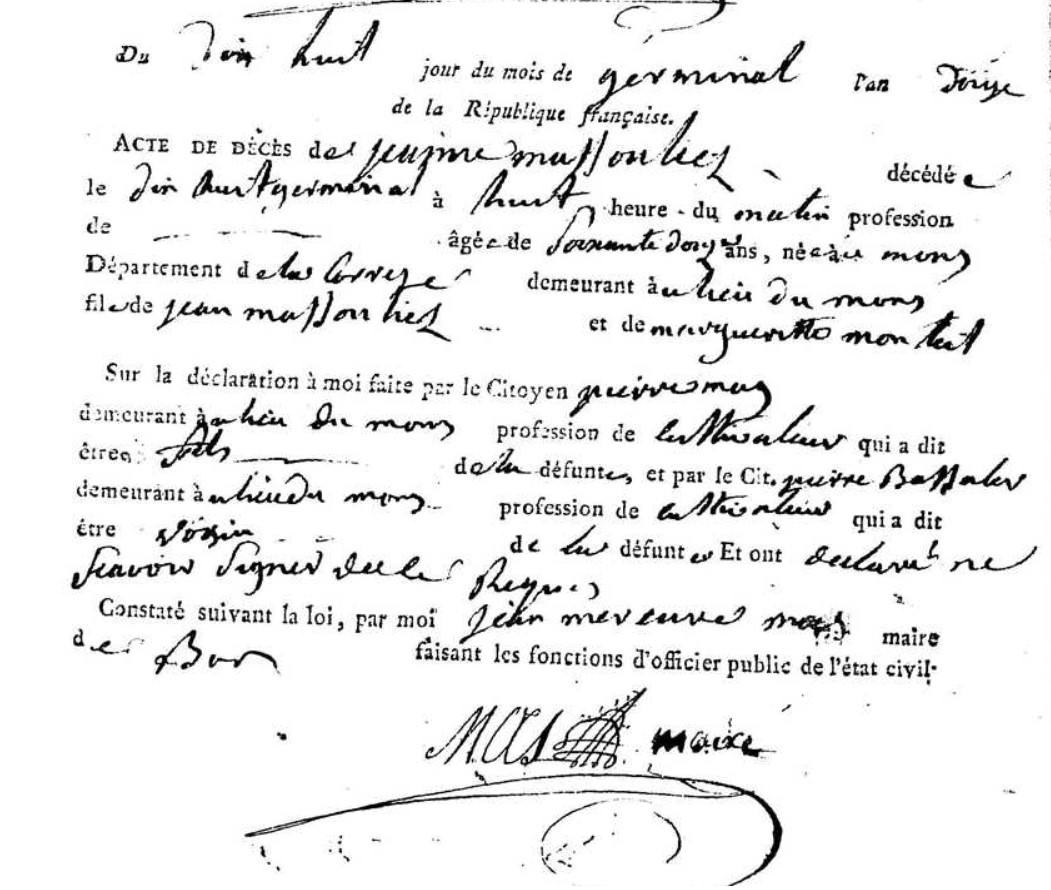 Du dix huit jour du mois de germinal l'an douze
de la République française.
ACTE DE DÉCÈS de jeanne massouliez décédée
le dix huit germinal à huit heure du matin profession
de âgée de soixante douze ans, née au mons
Département de la Correze demeurant au lieu du mons
fille de jean massouliez et de margueritte monteil
Sur la déclaration à moi faite par le Citoyen pierre mas
demeurant au lieu du mons profession de cultivateur qui a dit
être fils de la défunte, et par le Cit. pierre Bassaler
demeurant au lieu du mons profession de cultivateur qui a dit
être voisin de la défunte Et ont declaré ne
scavoir signer de ce Requis
Constaté suivant la loi, par moi jean mercure mas maire
de Bar faisant les fonctions d'officier public de l'état civil.
MAS maire